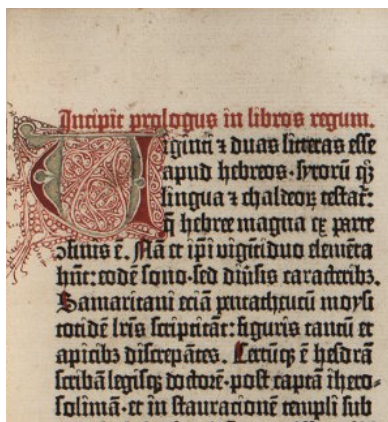 Incipit prologus in libros regum.
Viginti ⁊ duas litteras esse
apud hebreos · syrorũ qꝫ
lingua ⁊ chaldeoꝝ testat᷑:
q̃ hebree magna ex parte
ↄfinis ẽ. Nã et ip̃i vigintiduo elemẽta
hñt: eodẽ sono · sed diũsis caracteribꝫ.
Samaritani eciã pentatheucũ moysi
totidẽ lr̃is scriptitãt: figuris tantũ et
apicibꝫ discrepãtes. Certũqꝫ ẽ hesdrã
scribã legisqꝫ doctorẽ · post captã ihero⸗
solimã · et in stauracionẽ templi sub